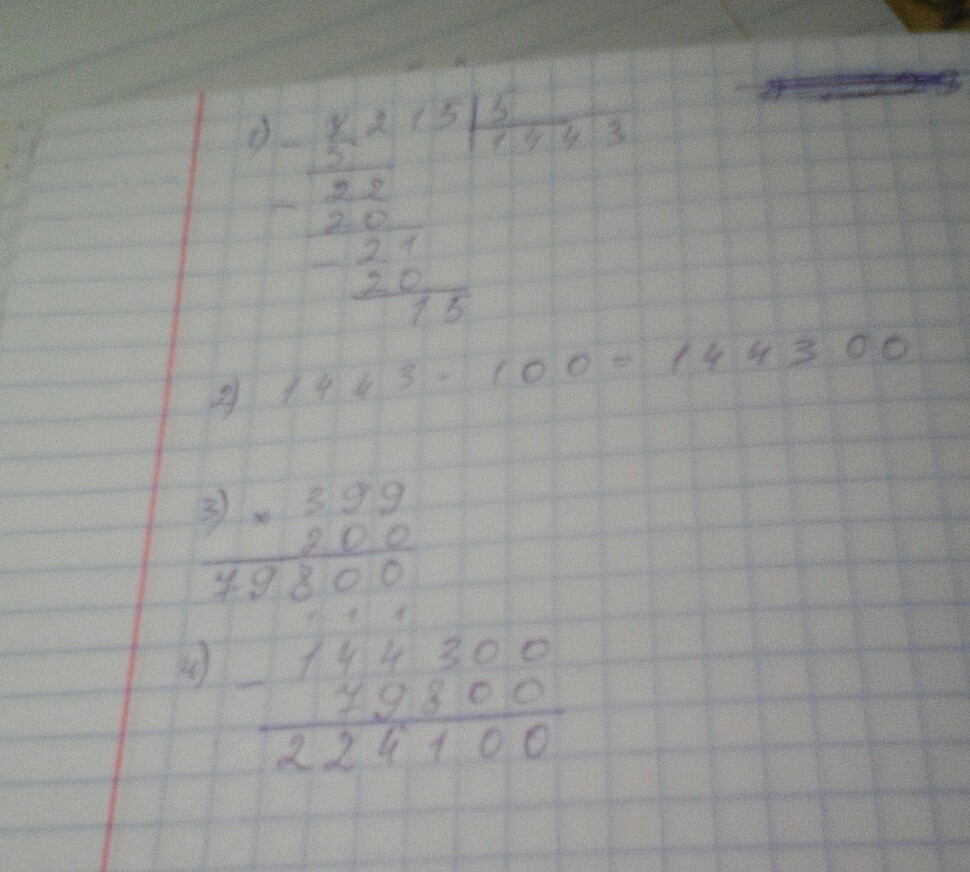 1) - 7 2 1 5 | 5
5 | 1 4 4 3
- 2 2
2 0
- 2 1
2 0
1 5
2) 1 4 4 3 · 1 0 0 = 1 4 4 3 0 0
3) × 3 9 9
2 0 0
7 9 8 0 0
1 1 1
4) - 1 4 4 3 0 0
7 9 8 0 0
2 2 4 1 0 0